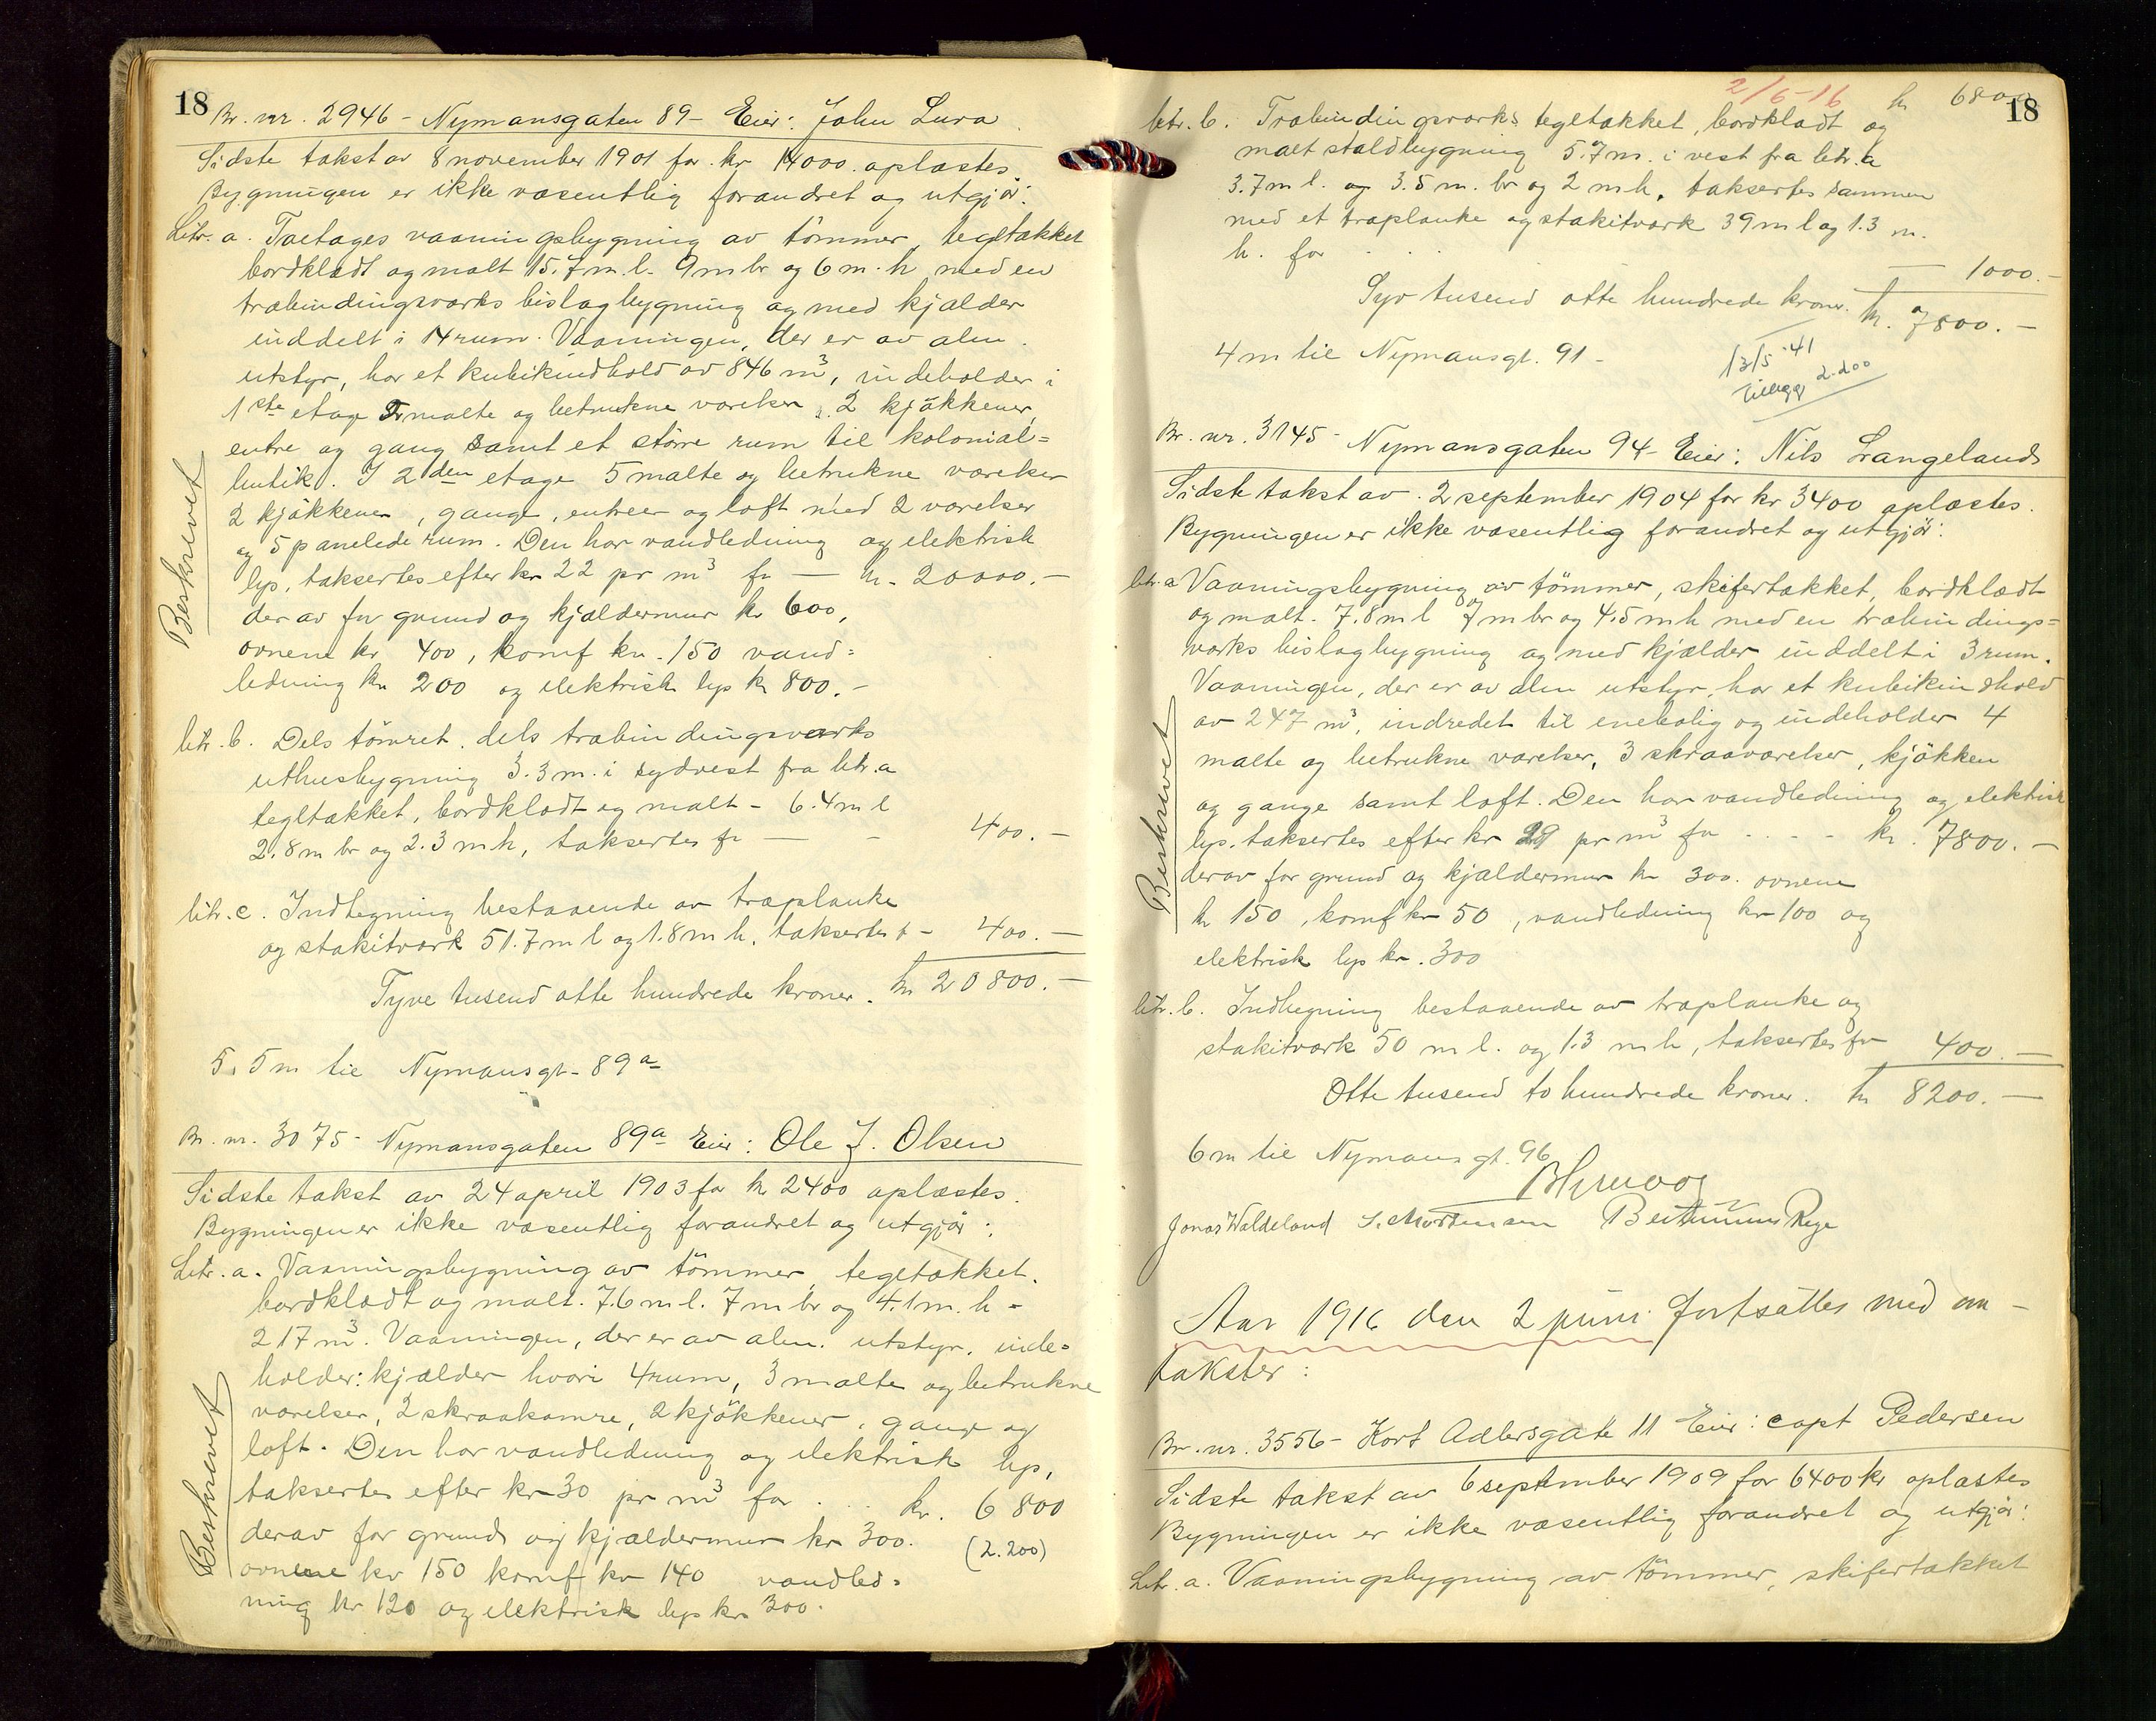 18
Br. nr. 2946 - Nymansgaten 89 - Eier: John Lura
Sidste takst av 8 november 1901 for kr 14000 oplæstes.
Bygningen er ikke væsentlig forandret og utgjör:
Litr. a. Toetages vaaningsbygning av tömmer, tegltækket
bordklædt og malt 15.7 m. l. 9 m br og 6 m. h med en
træbindingsværks bislagbygning og med kjælder
inddelt i 14 rum. Vaaningen, der er av alm.
utstyr, har et kubikindhold av 846 m³, indeholder i
1ste etage malte og betrukne værelser, 2 kjökkener,
entre og gang samt et större rum til kolonial=
butik. I 2den etage 5 malte og betrukne værelser
2 kjökkener, gange, entreer og loft med 2 værelser
og 5 panelede rum. Den har vandledning og elektrisk
lys, taksertes efter kr 22 pr m³ for — kr. 20000.—
der av for grund og kjældermur kr 600,
ovnene kr 400, komf kr. 150 vand=
ledning kr 200 og elektrisk lys kr 800.—
Beskrevet
litr. b. Dels tömret, dels træbindingsværks
uthusbygning 3.3 m. i sydvest fra litr. a
tegltækket, bordklædt og malt - 6.4 m l
2.8 m br og 2.3 m h, taksertes for — - 400.—
litr. c. Indhegning bestaaende av træplanke
og stakitværk 51.7 m l og 1.8 m h, taksertes f - 400.—
Tyve tusend otte hundrede kroner. kr 20800.—
5.5 m til Nymansgt. 89a
Br. nr. 3075 - Nymansgaten 89a Eier: Ole J. Olsen
Sidste takst av 24 april 1903 for kr 2400 oplæstes.
Bygningen er ikke væsentlig forandret og utgjör:
Litr. a. Vaaningsbygning av tömmer, tegltækket,
bordklædt og malt. 7.6 m l. 7 m br og 4.1 m. h =
217 m³. Vaaningen, der er av alm. utstyr, inde=
holder: kjælder hvori 4 rum, 3 malte og betrukne
værelser, 2 skraakamre, 2 kjökkener, gange og
loft. Den har vandledning og elektrisk lys,
taksertes efter kr 30 pr m³ for . . . kr. 6800
derav for grund og kjældermur kr 300. (2.200)
ovnene kr 150 komf kr 140 vandled=
ning kr 120 og elektrisk lys kr 300.
Beskrevet
2/6-16 kr 6800
18
litr. b. Træbindingsværks tegltækket, bordklædt og
malt staldbygning 5.7 m. i vest fra litr. a
3.7 m l. og 3.5 m. br og 2 m h, taksertes sammen
med et træplanke og stakitværk 39 m l og 1.3 m.
h. for . . . — 1000.—
Syv tusend otte hundrede kroner. kr. 7800.—
4 m til Nymansgt. 91 -
13/5-41
Tillegg 2.200
Br. nr. 3145 - Nymansgaten 94 - Eier: Nils Langeland
Sidste takst av 2 september 1904 for kr 3400 oplæstes.
Bygningen er ikke væsentlig forandret og utgjör:
litr. a Vaaningsbygning av tömmer, skifertækket, bordklædt
og malt. 7.8 m l 7 m br og 4.5 m h med en træbindings=
værks bislagbygning og med kjælder inddelt i 3 rum.
Vaaningen, der er av alm utstyr, har et kubikindhold
av 247 m³, indredet til enebolig og indeholder 4
malte og betrukne værelser, 3 skraaværelser, kjökken
og gange samt loft. Den har vandledning og elektrisk
lys, taksertes efter kr 29 pr m³ for - . . - - kr. 7800.—
derav for grund og kjældermur kr 300. ovnene
kr 150, komf kr 50, vandledning kr 100 og
elektrisk lys kr. 300
Beskrevet
litr. b. Indhegning bestaaende av træplanke og
stakitværk 50 m l. og 1.3 m h, taksertes for 400.—
Otte tusend to hundrede kroner. kr 8200.—
6 m til Nymansgt. 96
Jonas Waldeland S. Mortensen Rege
Aar 1916 den 2 juni fortsattes med om-
takster:
Br. nr. 3556 - Kort Adlersgate 11 Eier: capt Pedersen
Sidste takst av 6 september 1909 for 6400 kr oplæstes
Bygningen er ikke væsentlig forandret og utgjör:
Litr. a. Vaaningsbygning av tömmer, skifertækket